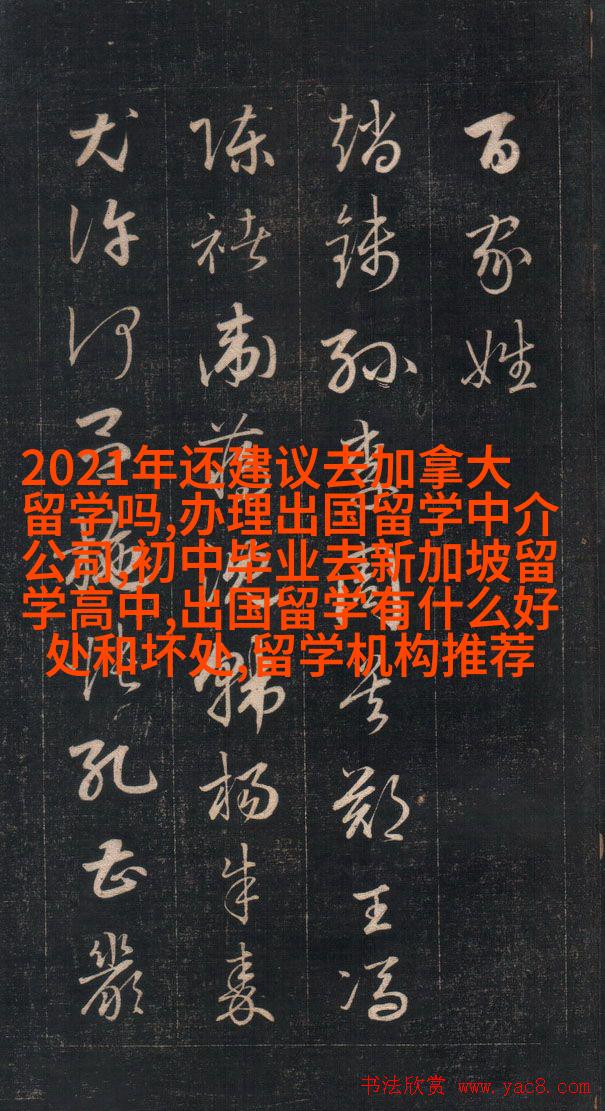 百家姓
趙錢孫李周吳鄭王馮
陳褚衛蔣沈韓楊朱秦
尤許何呂施張孔曹嚴
2021年还建议去加拿大
留学吗,办理出国留学中介
公司,初中毕业去新加坡留
学高中,出国留学有什么好
处和坏处,留学机构推荐
书法欣赏 www.yac8.com